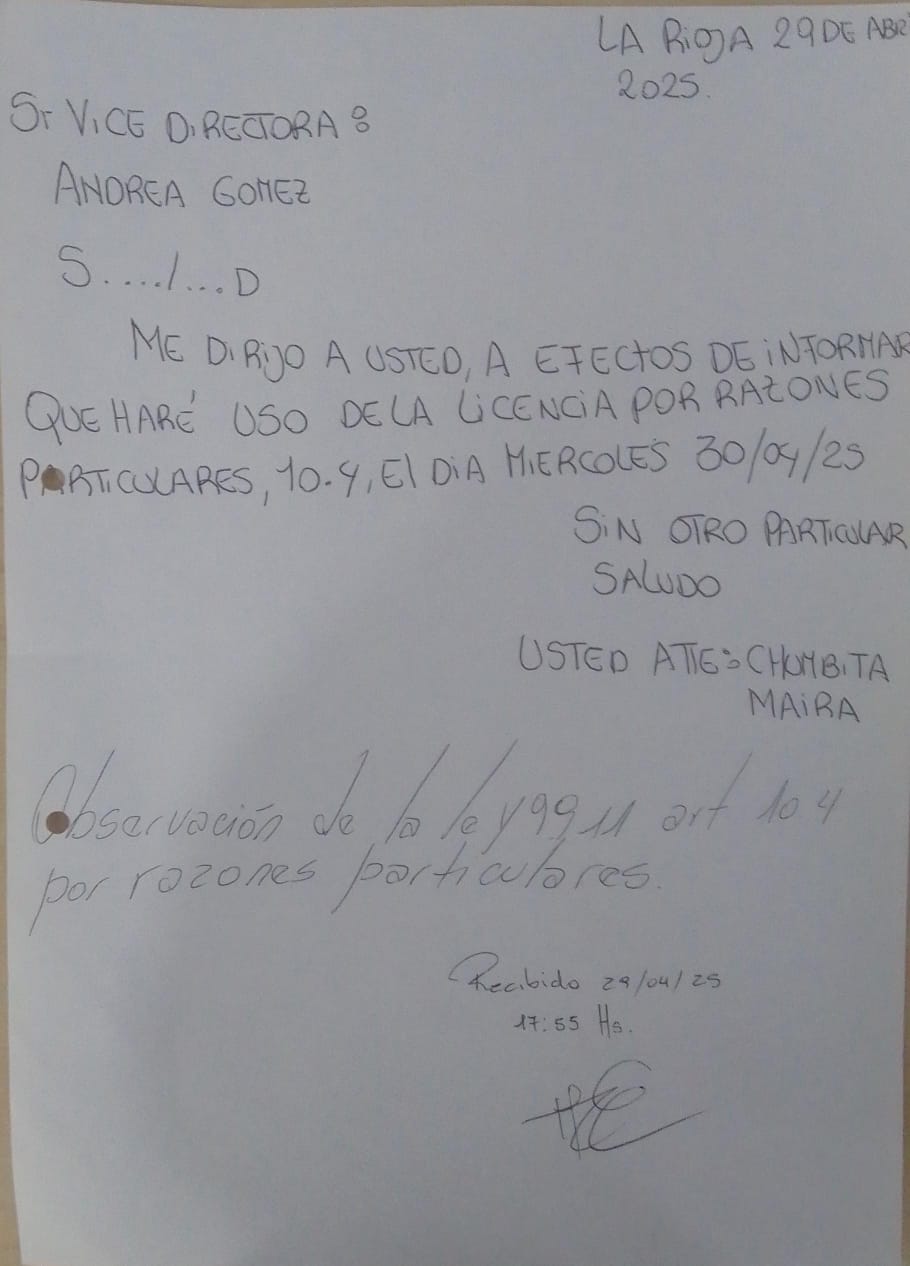 LA RiOJA 29 DE ABR
2025.
Sr VICE DIRECTORA:
ANDREA GOMEZ
S..../...D
ME DIRIJO A USTED, A EFECTOS DE INFORMAR
QUE HARÉ USO DE LA LICENCIA POR RAZONES
PARTICULARES, 10.4, El DIA MIERCOLES 30/04/25
SIN OTRO PARTICULAR
SALUDO
USTED ATTE: CHUMBITA
MAIRA
Observación de la ley 9911 art 10 4
por razones particulares.
Recibido 29/04/25
17:55 Hs.